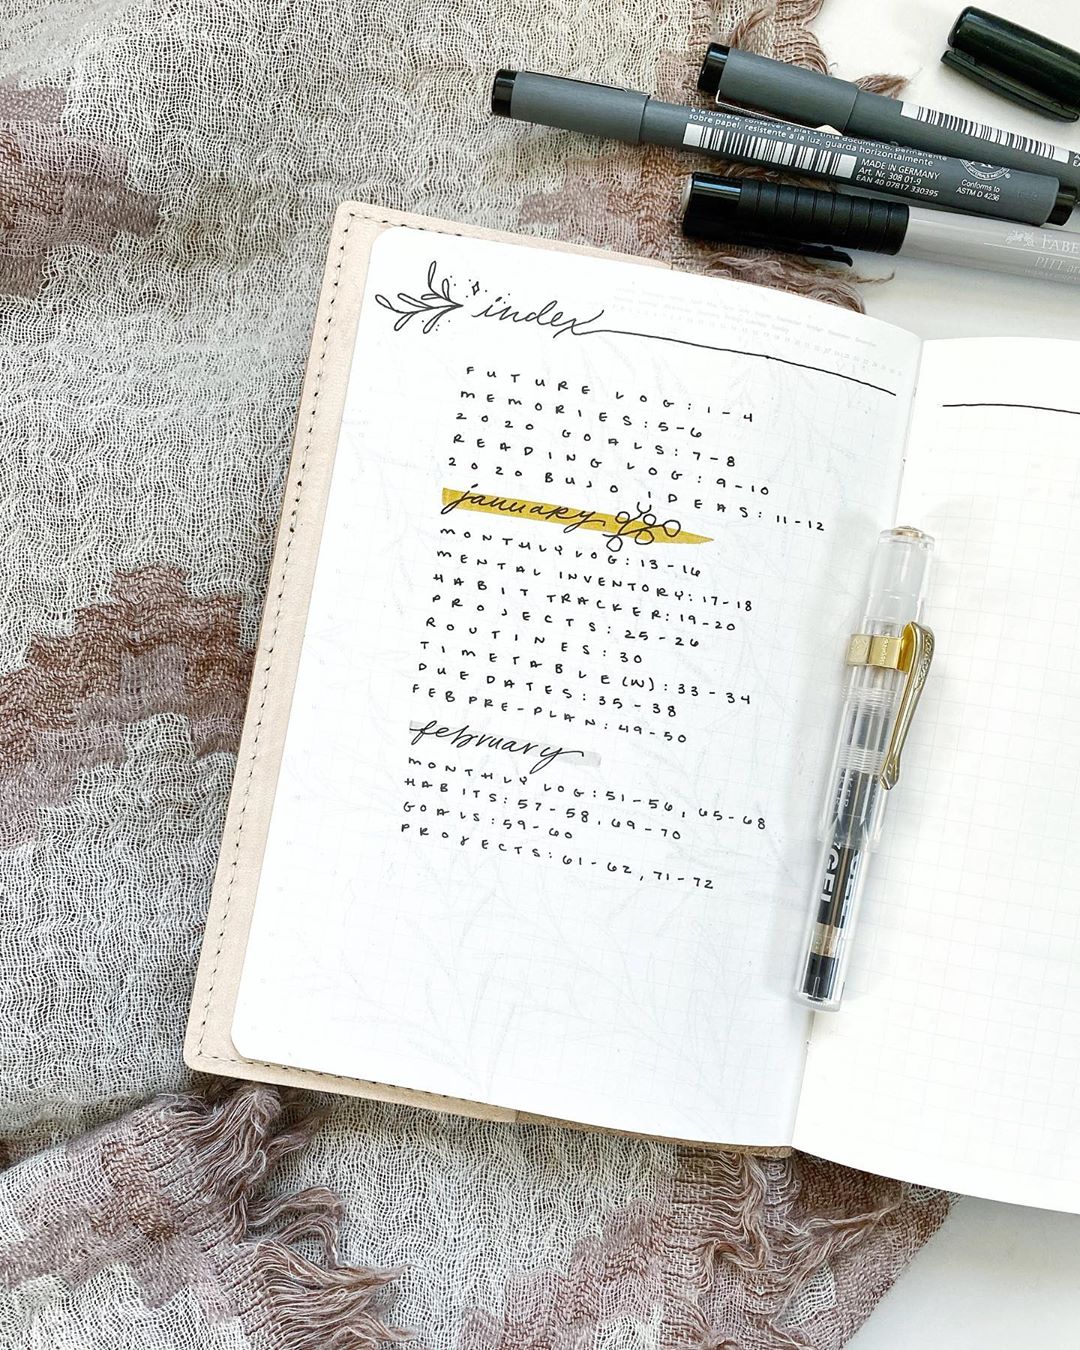 à la lumière, conserver à plat • tinte documento, permanente
sobre papel, resistente a la luz, guarda horizontalmente
MADE IN GERMANY
Art. Nr. 308 01-9
EAN 40 07817 330395
Conforms to
ASTM D 4236
FABE
PITT ar
index
FUTURE LOG: 1-4
MEMORIES: 5-6
2020 GOALS: 7-8
READING LOG: 9-10
2020 BUJO IDEAS: 11-12
january
MONTHLY LOG: 13-16
MENTAL INVENTORY: 17-18
HABIT TRACKER: 19-20
PROJECTS: 25-26
ROUTINES: 30
TIMETABLE (W): 33-34
DUE DATES: 35-38
FEB PRE-PLAN: 49-50
february
MONTHLY LOG: 51-56, 65-68
HABITS: 57-58, 69-70
GOALS: 59-60
PROJECTS: 61-62, 71-72